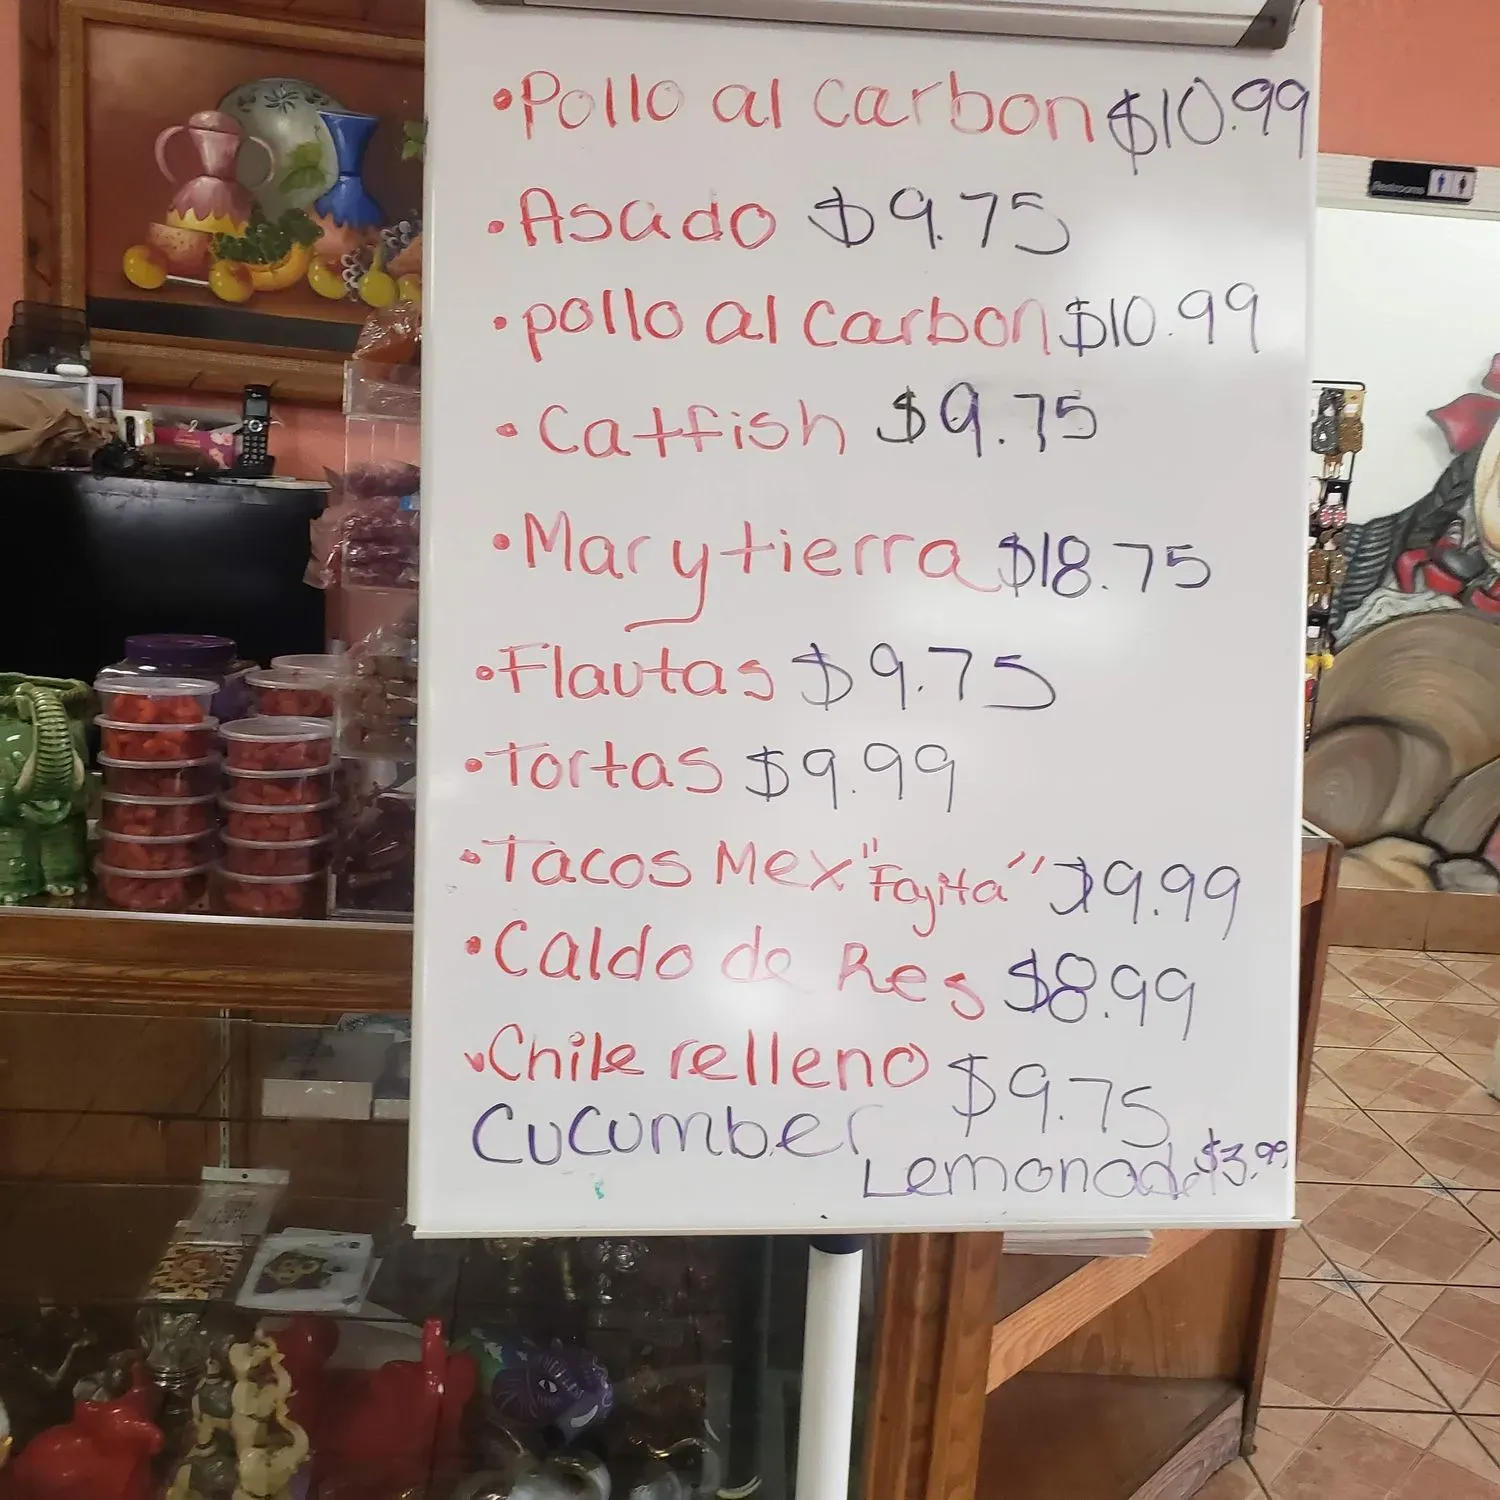 •Pollo al carbon $10.99
•Asado $9.75
•pollo al carbon $10.99
•Catfish $9.75
•Mar y tierra $18.75
•Flautas $9.75
•Tortas $9.99
•Tacos Mex "Fajita" $9.99
•Caldo de Res $8.99
•Chile relleno $9.75
Cucumber
Lemonade $3.99
Restrooms